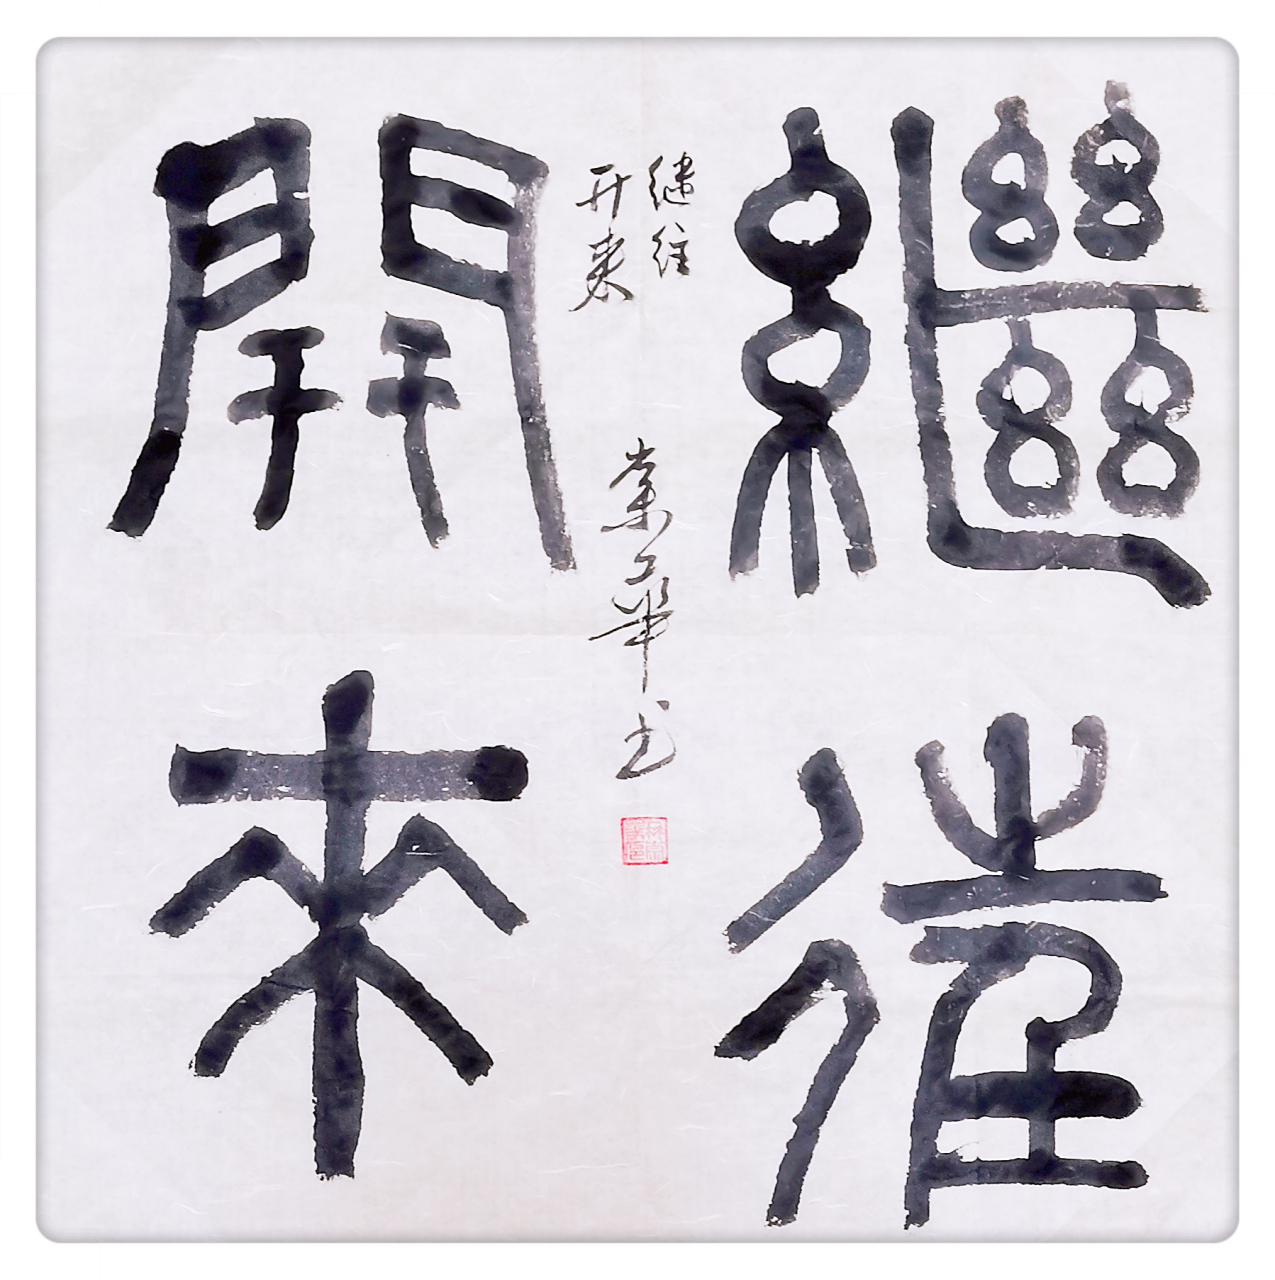 繼往
開來
继往
开来